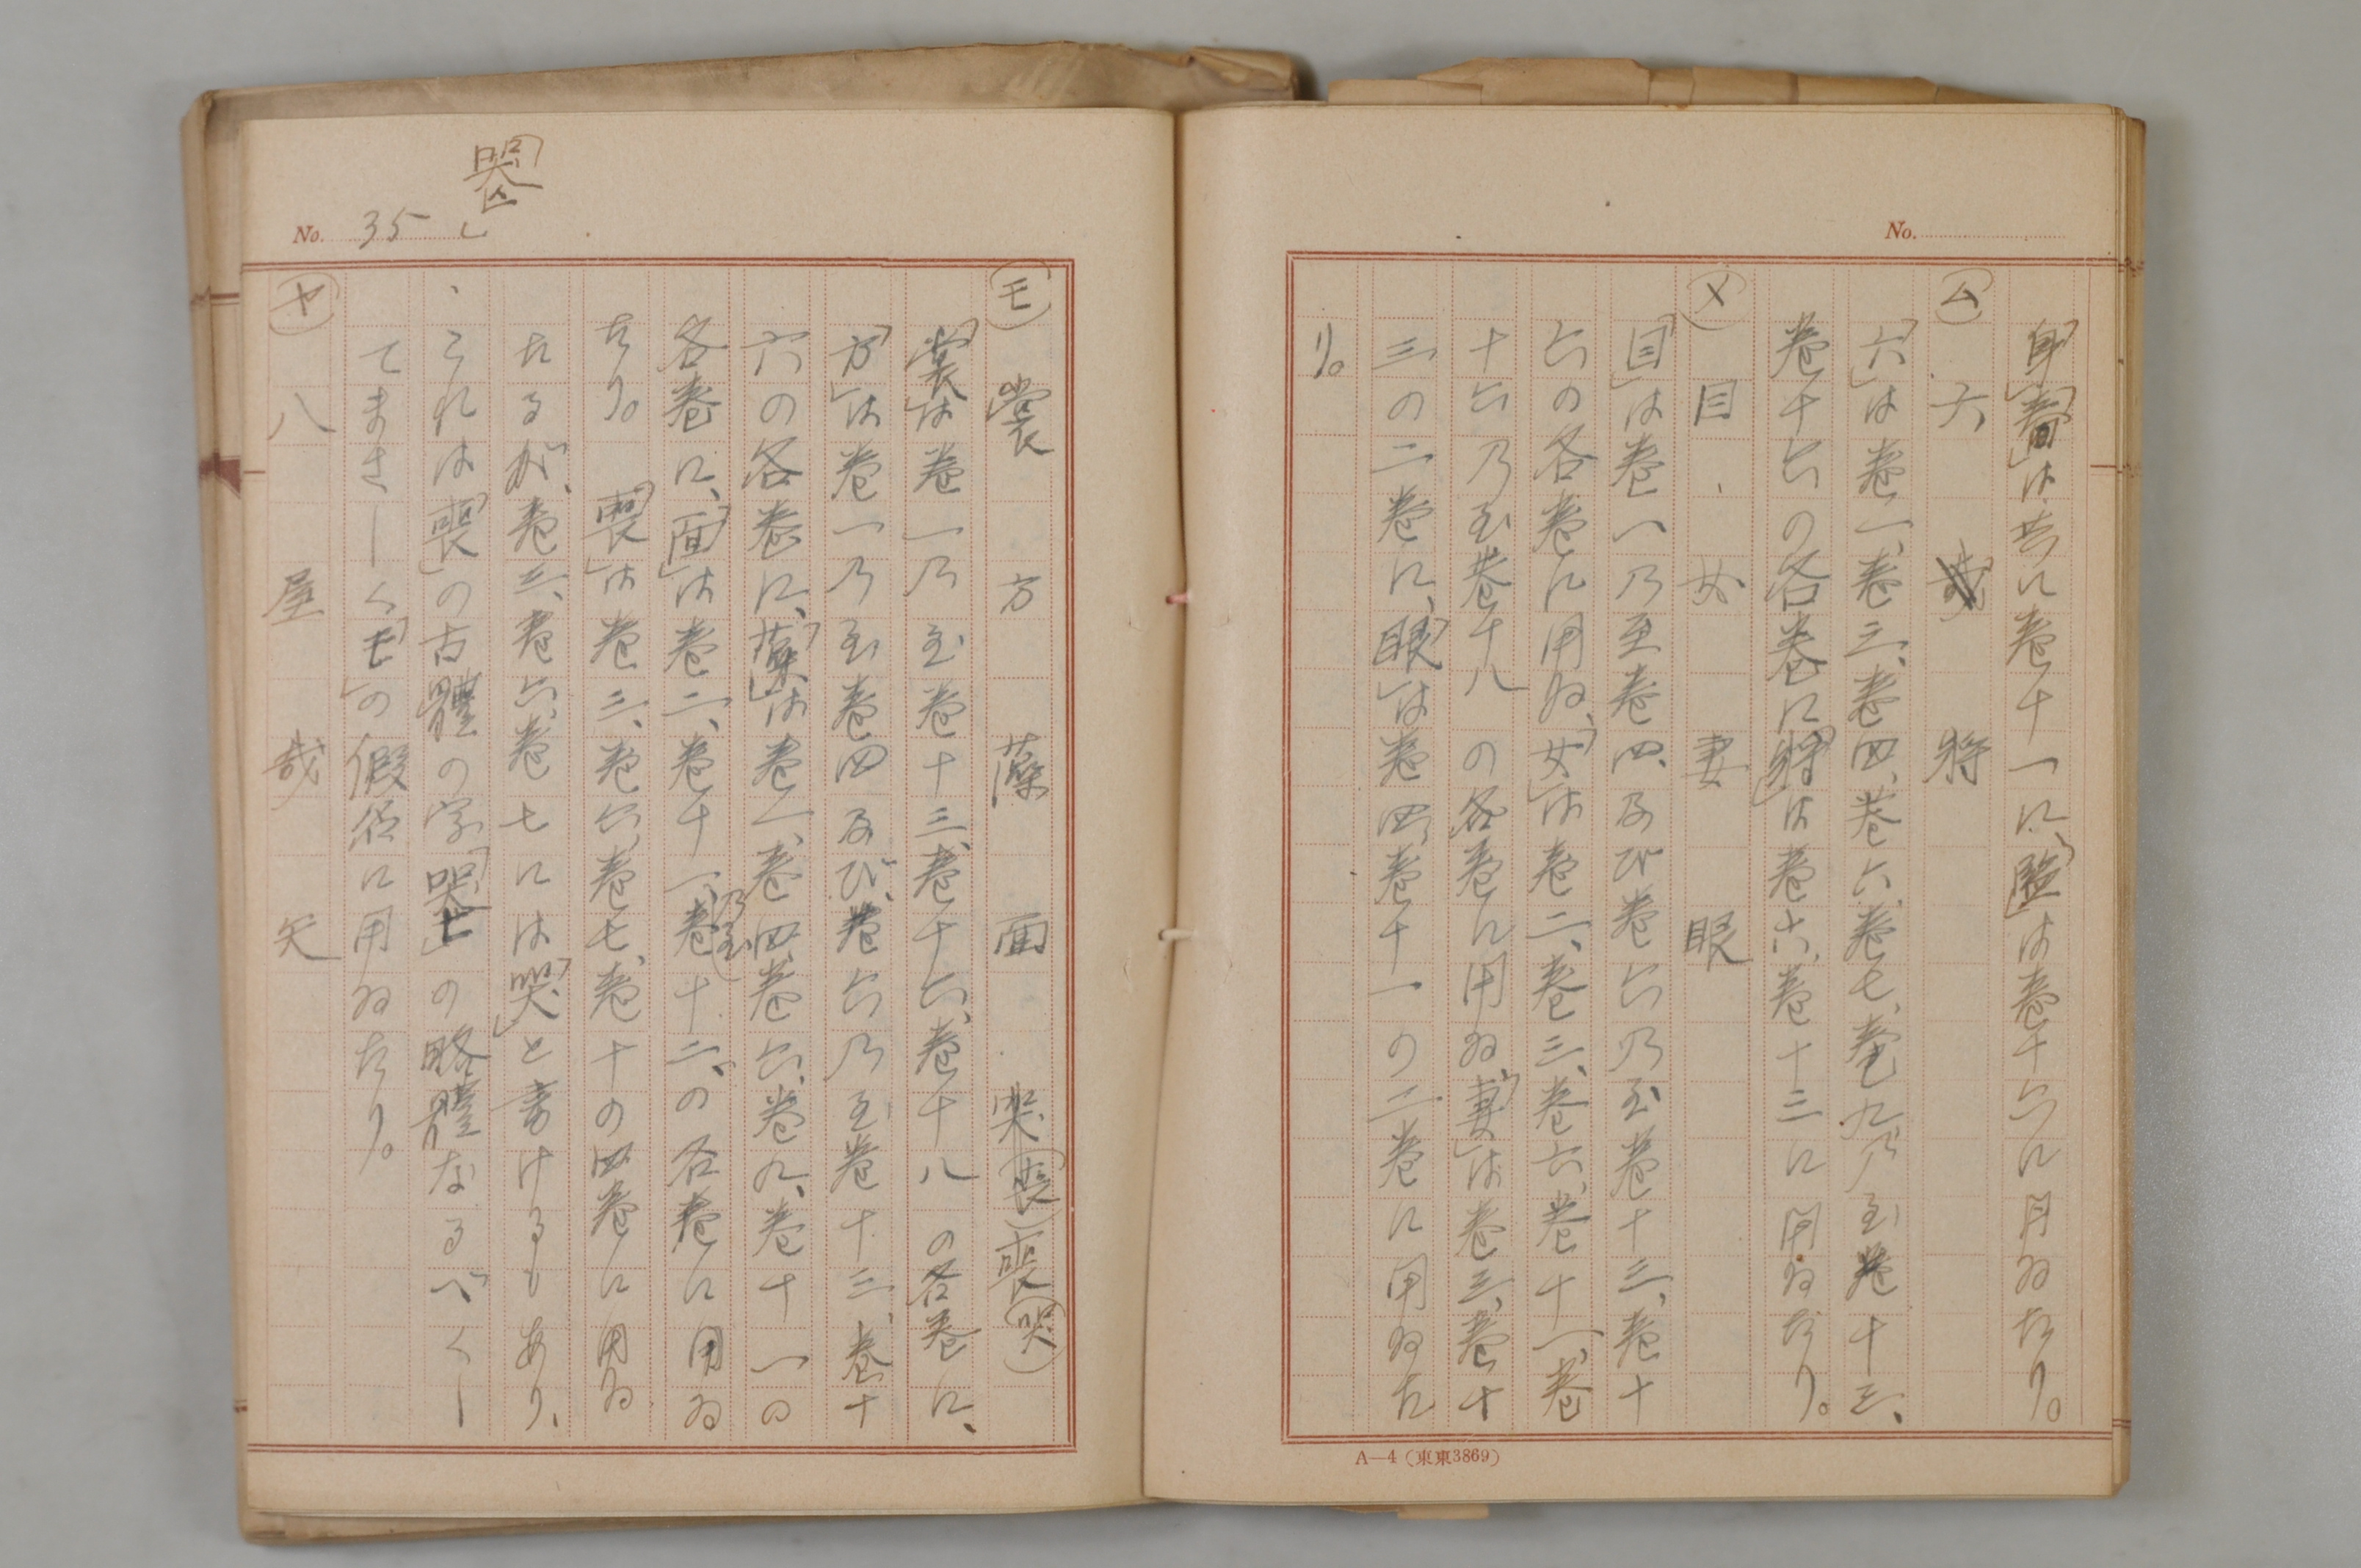 No.
「身」「箭」は共に巻十一に、「䀋」は巻十六に用ゐたり。
(ム) 六 哉 将
「六」は巻一、巻三、巻四、巻六、巻七、巻九乃至巻十三、
巻十六の各巻に「将」は巻六、巻十三に用ゐたり。
(メ) 目、女 妻 眼
「目」は巻一乃至巻四、及び巻六乃至巻十三、巻十
六の各巻に用ゐ、「女」は巻二、巻三、巻六、巻十一、巻
十六乃至巻十八の各巻に用ゐ、「妻」は巻三、巻十
三の二巻に、「眼」は巻四、巻十一の二巻に用ゐた
り。
A—4 (東東3869)
No. 35
(モ) 裳 方 藻 面 哭(喪)喪(哭)
「裳」は巻一乃至巻十三、巻十六、巻十八の各巻に、
「方」は巻一乃至巻四及び、巻六乃至巻十三、巻十
六の各巻に、「藻」は巻一、巻四、巻六、巻九、巻十一の
各巻に、「面」は巻二、巻十一、(乃至)巻十二、の各巻に用ゐ
たり。「喪」は巻三、巻六、巻七、巻十の四巻に用ゐ
たるが、巻三、巻六、巻七には「哭」と書けるもあり、
、これは「喪」の古體の字「𠸶」の略體なるべくし
てまさしく「モ」の假名に用ゐたり。
(ヤ) 八 屋 哉 矢